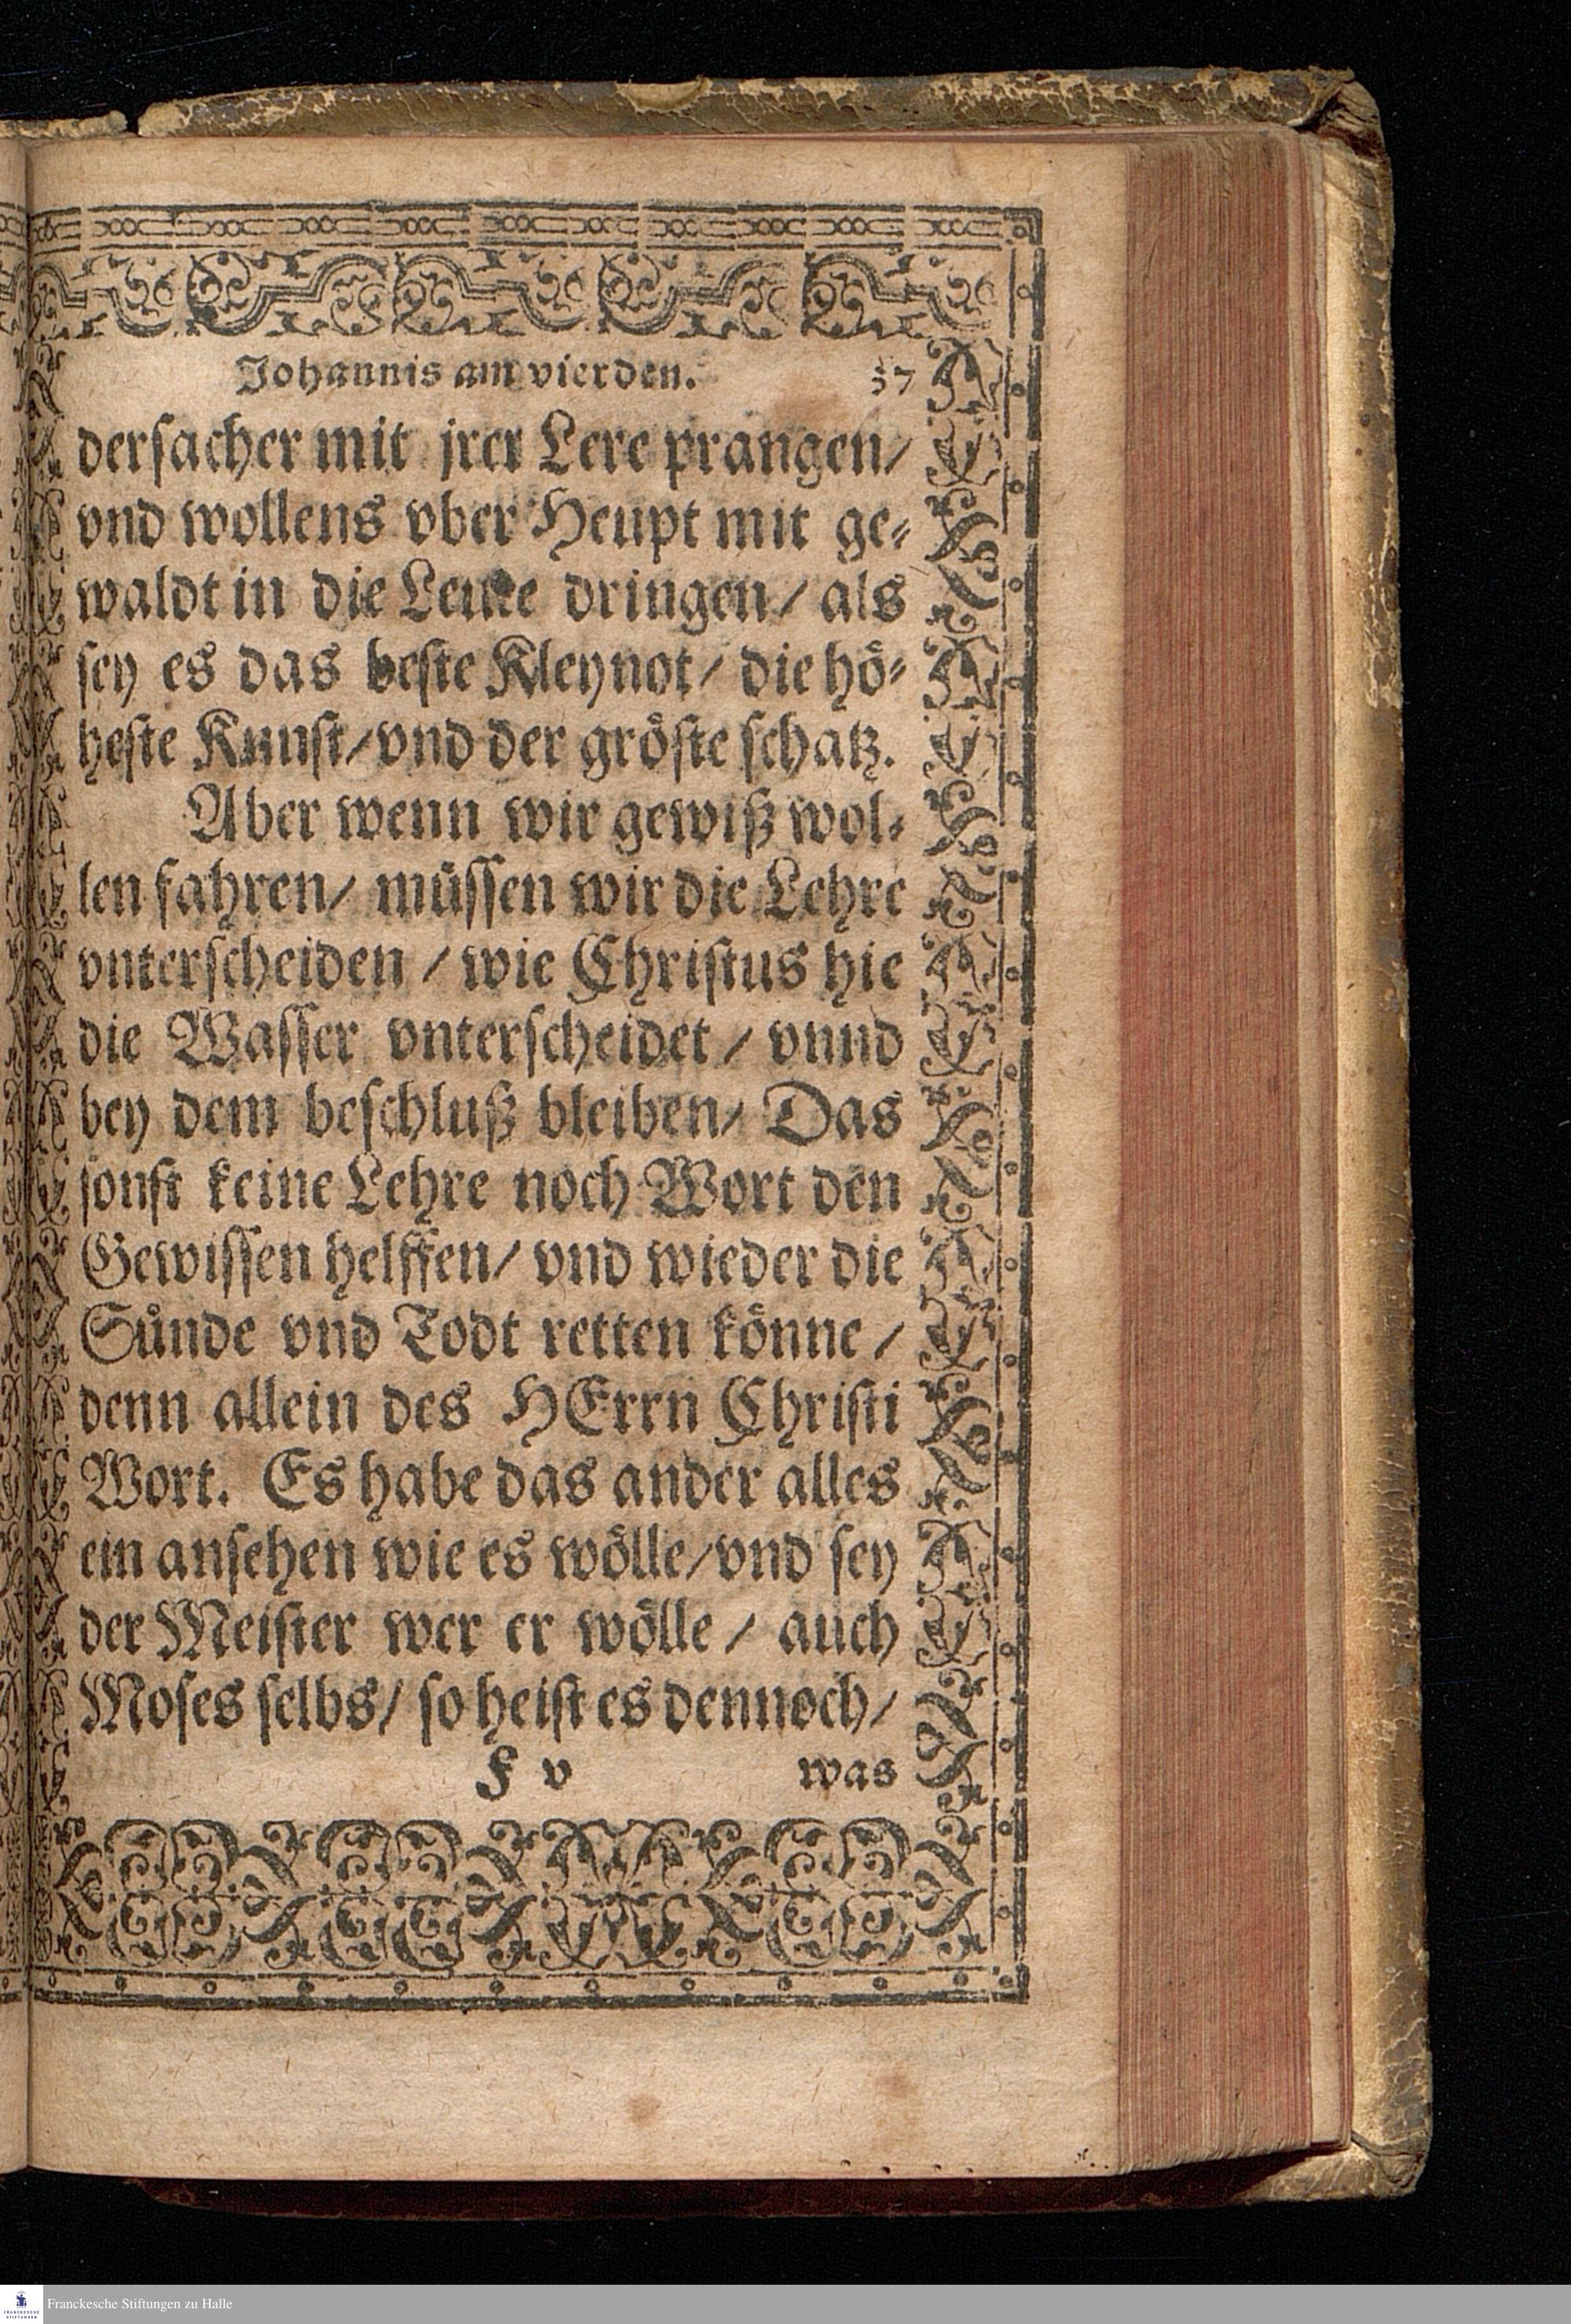 Johannis am vierden. 37
dersacher mit jrer Lere prangen/
vnd wollens vber Heupt mit ge⸗
waldt in die Leute dringen/ als
sey es das beste Kleynot/ die hö⸗
heste Kunst/ vnd der gröste schatz.
Aber wenn wir gewiß wol⸗
len fahren/ müssen wir die Lehre
vnterscheiden / wie Christus hie
die Wasser vnterscheidet / vnnd
bey dem beschluß bleiben/ Das
sonst keine Lehre noch Wort den
Gewissen helffen/ vnd wieder die
Sünde vnd Todt retten könne /
denn allein des HErrn Christi
Wort. Es habe das ander alles
ein ansehen wie es wölle/ vnd sey
der Meister wer er wölle / auch
Moses selbs/ so heist es dennoch/
F v was
FRANCKESCHE STIFTUNGEN
Franckesche Stiftungen zu Halle